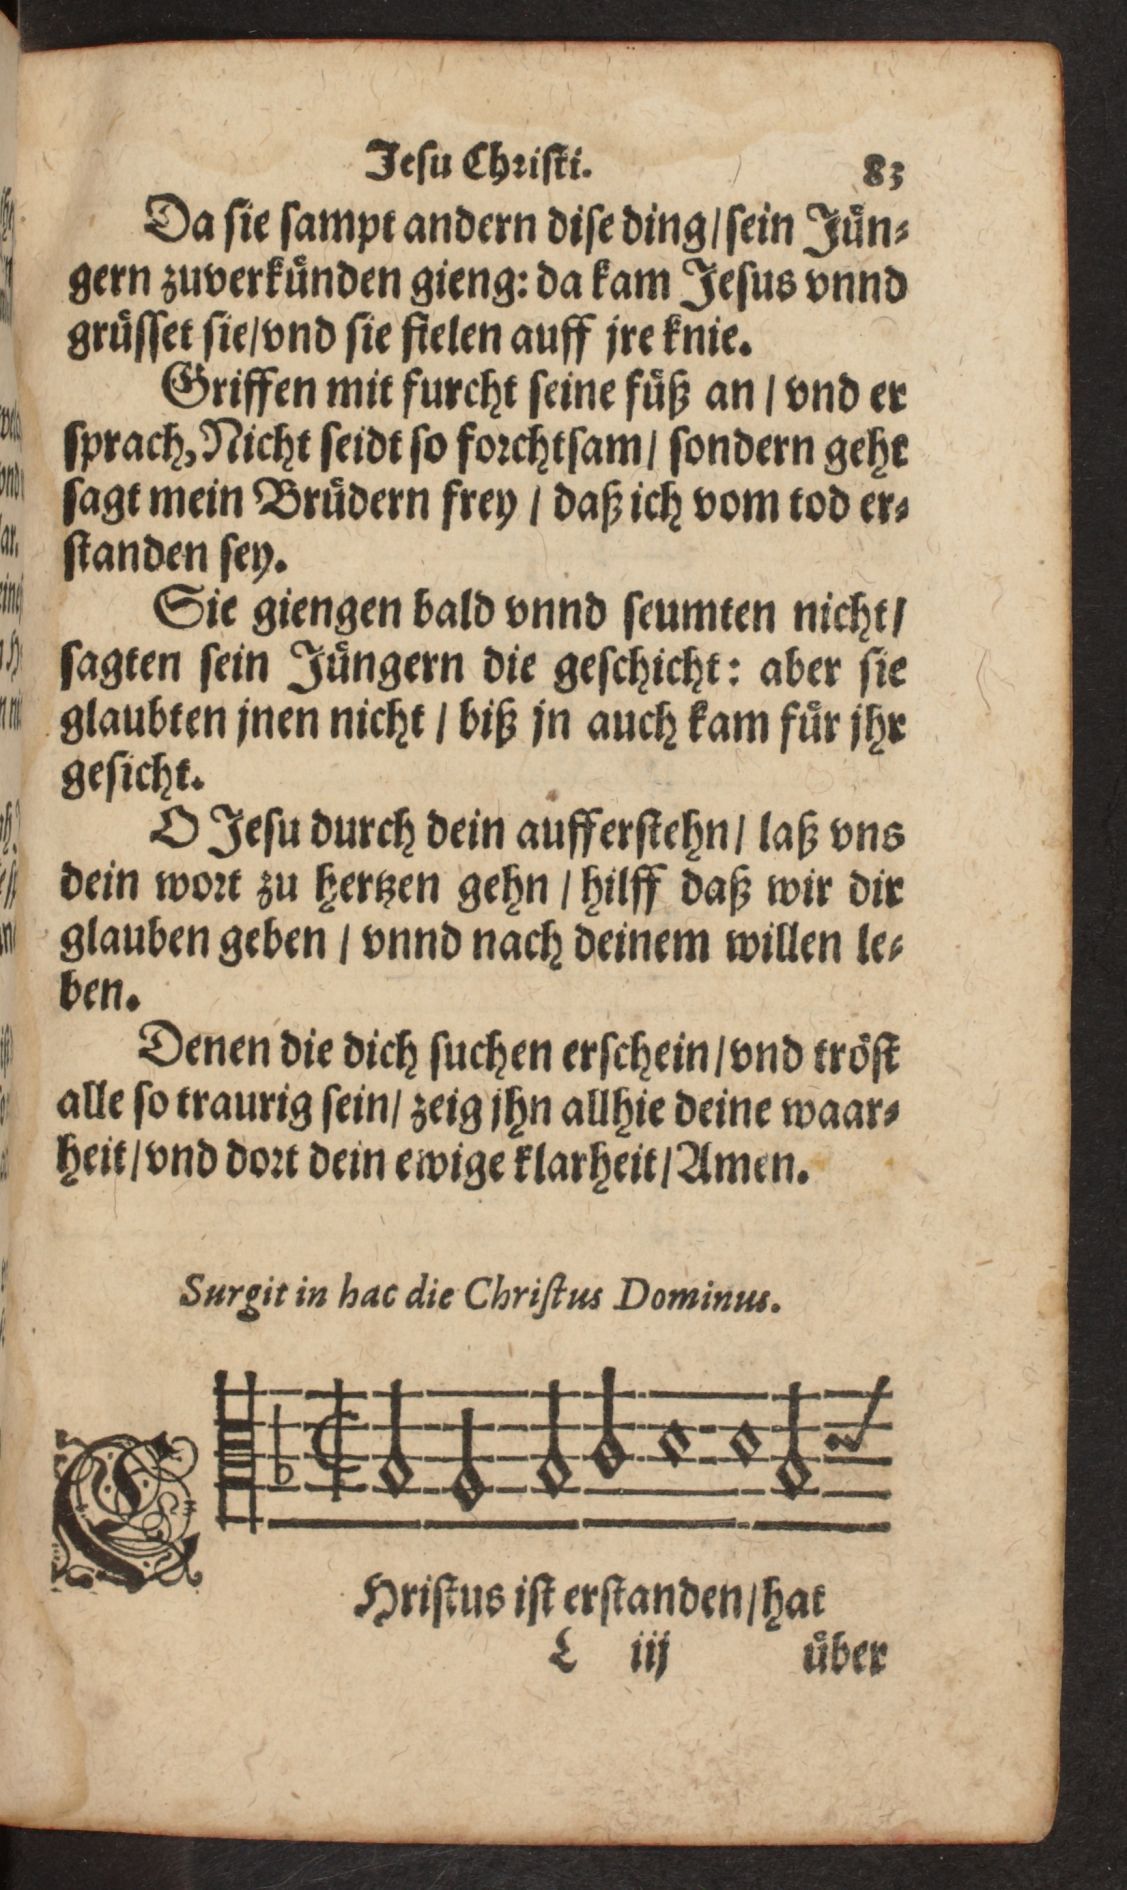 Jesu Christi. 83
Da sie sampt andern dise ding/sein Jün⸗
gern zuverkünden gieng: da kam Jesus vnnd
grüsset sie/vnd sie fielen auff jre knie.
Griffen mit furcht seine füß an / vnd er
sprach, Nicht seidt so forchtsam/ sondern geht
sagt mein Brüdern frey / daß ich vom tod er⸗
standen sey.
Sie giengen bald vnnd seumten nicht/
sagten sein Jüngern die geschicht: aber sie
glaubten jnen nicht / biß jn auch kam für jhr
gesicht.
O Jesu durch dein aufferstehn/ laß vns
dein wort zu hertzen gehn / hilff daß wir dir
glauben geben / vnnd nach deinem willen le⸗
ben.
Denen die dich suchen erschein/vnd tröst
alle so traurig sein/ zeig jhn allhie deine waar⸗
heit/vnd dort dein ewige klarheit/Amen.
Surgit in hac die Christus Dominus.
CHristus ist erstanden/hat
L iij über